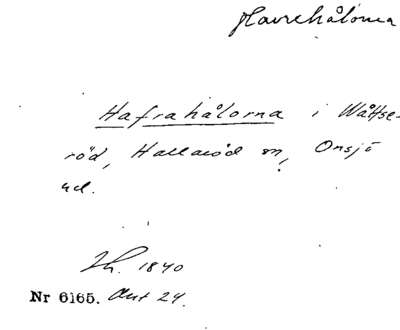 Havrehålorna
Hafrahålorna i Wåttse-
röd, Hallaröd sn, Onsjö
hd.
1840
Nr 6165. Avt 24.